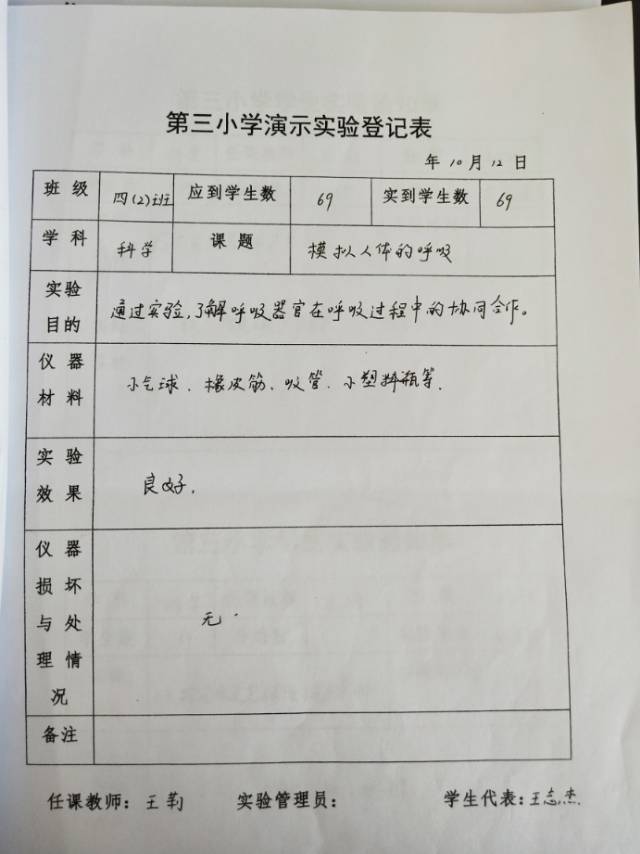 第三小学演示实验登记表
年10月12日
班级 四(2)班 应到学生数 69 实到学生数 69
学科 科学 课题 模拟人体的呼吸
实验目的 通过实验,了解呼吸器官在呼吸过程中的协同合作。
仪器材料 小气球、橡皮筋、吸管、小塑料瓶等.
实验效果 良好.
仪器损坏与处理情况 无.
备注
任课教师: 王 实验管理员: 学生代表:王志杰.